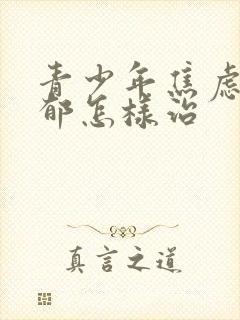 青少年焦虑
郁怎样治
真言之道